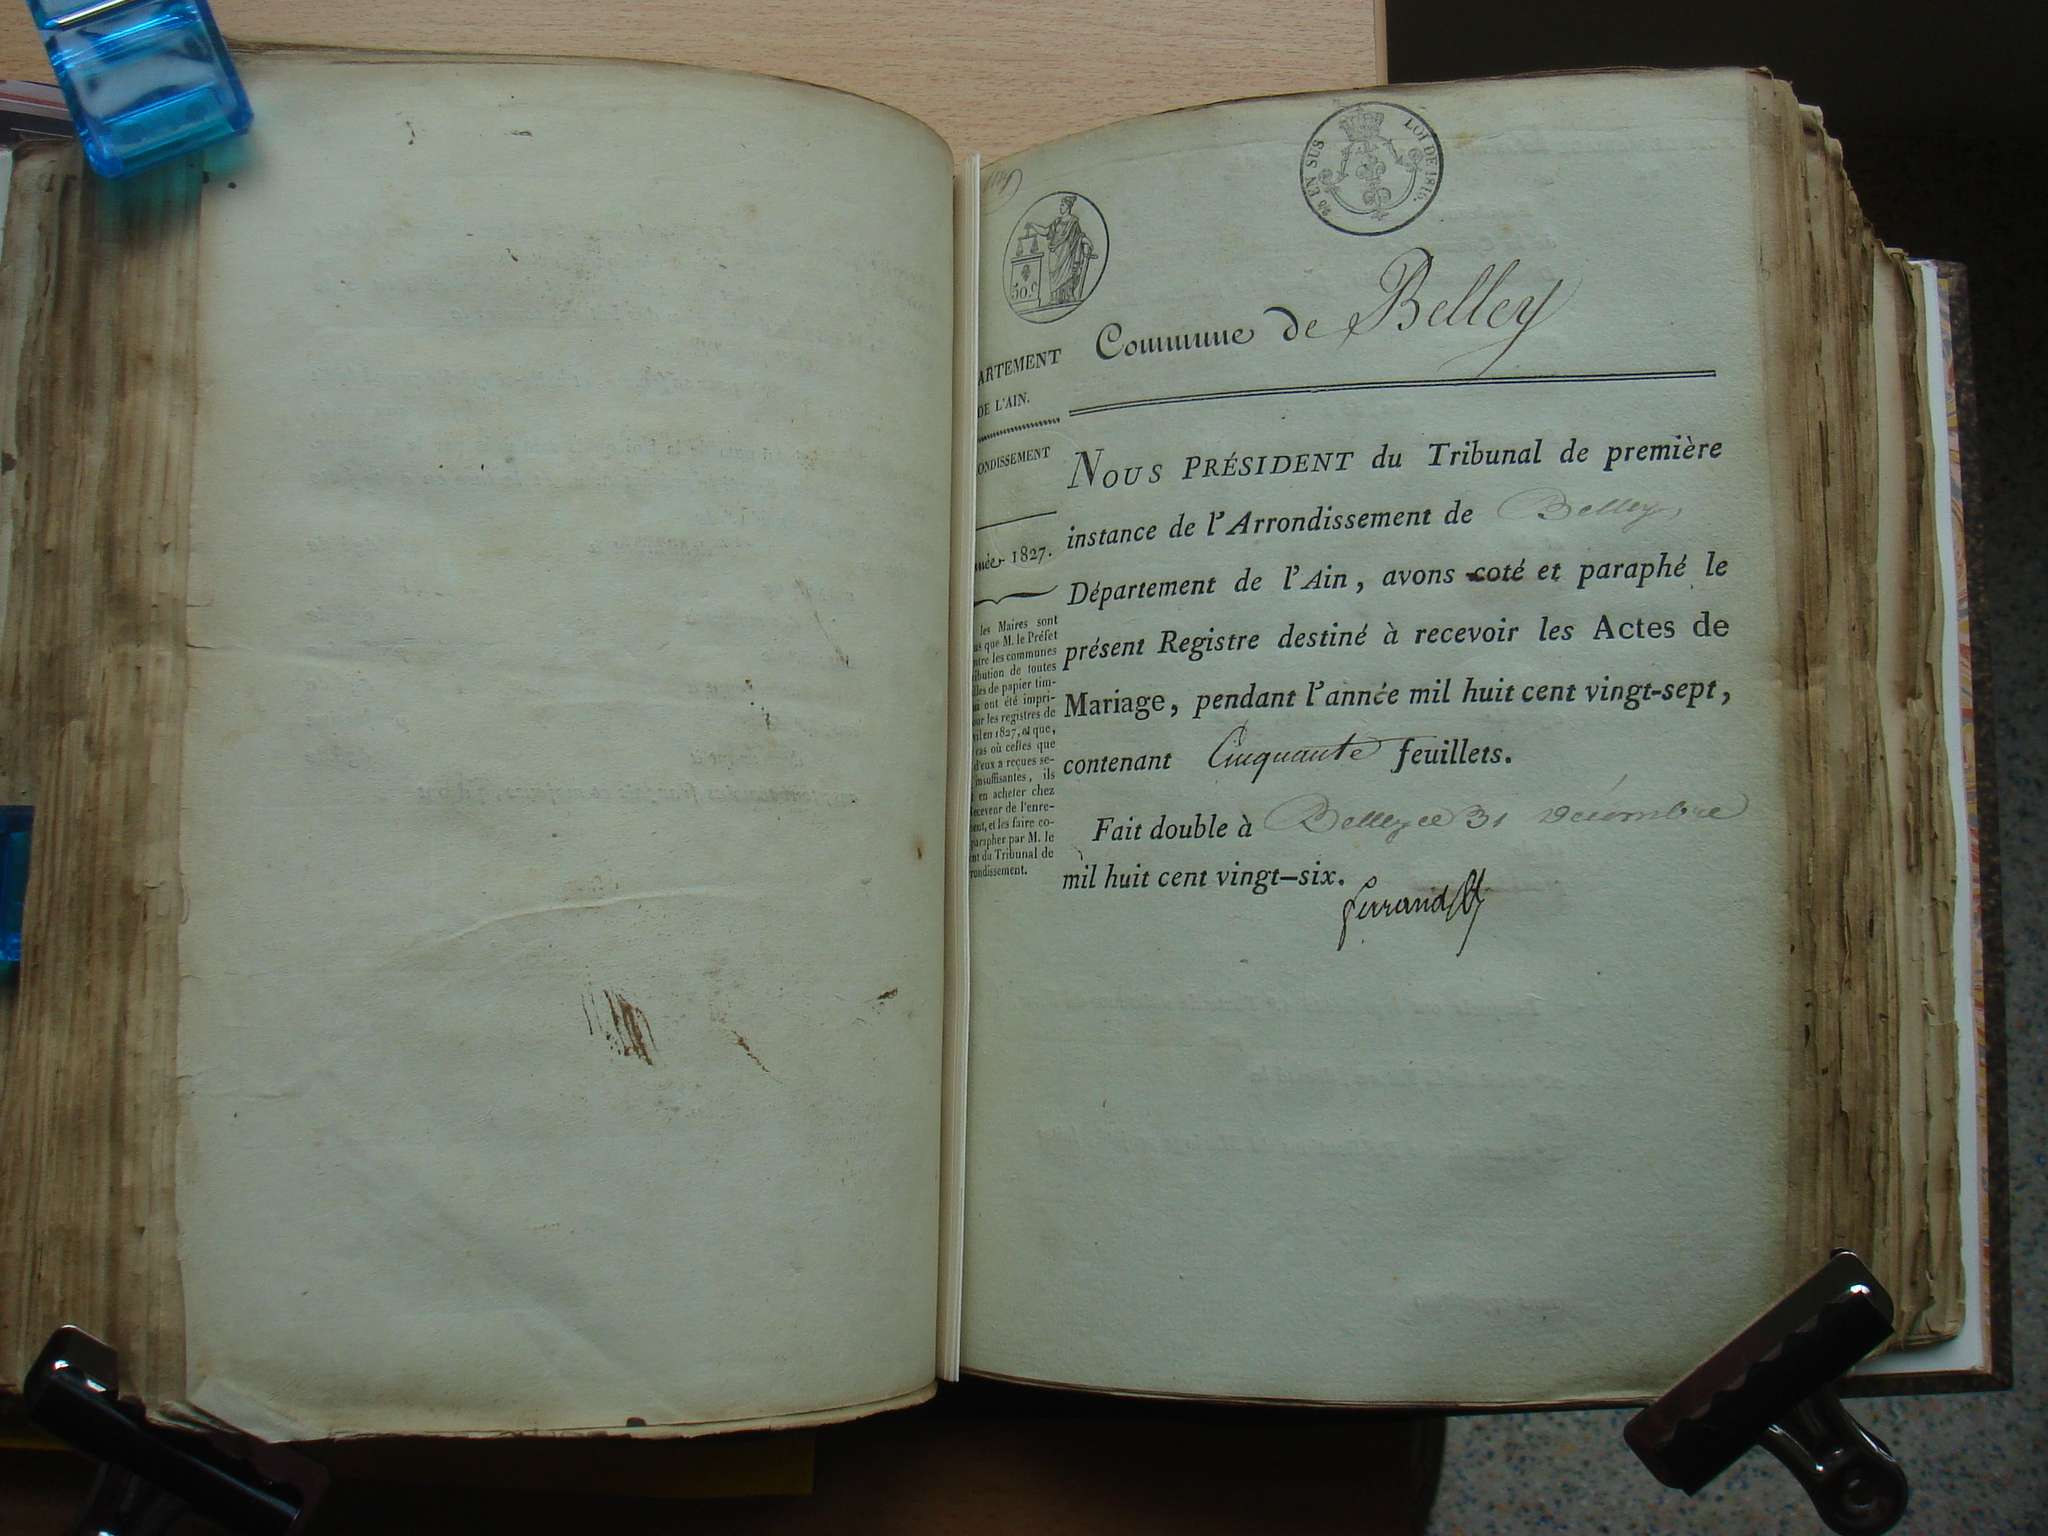 LOI DE 1816.
EN SUS
50.c
Commune de Belley
ARTEMENT
DE L'AIN.
ONDISSEMENT
née 1827.
les Maires sont
us que M. le Préfet
ntre les communes
ibution de toutes
lles de papier tim-
i ont été impri-
our les registres de
vil en 1827, et que,
cas où celles que
d'eux a reçues se-
insuffisantes, ils
t en acheter chez
Receveur de l'enre-
ment, et les faire co-
parapher par M. le
nt du Tribunal de
rondissement.
NOUS PRÉSIDENT du Tribunal de première
instance de l'Arrondissement de Belley,
Département de l'Ain, avons coté et paraphé le
présent Registre destiné à recevoir les Actes de
Mariage, pendant l'année mil huit cent vingt-sept,
contenant Cinquante feuillets.
Fait double à Belley ce 31 décembre
mil huit cent vingt-six.
ferrand